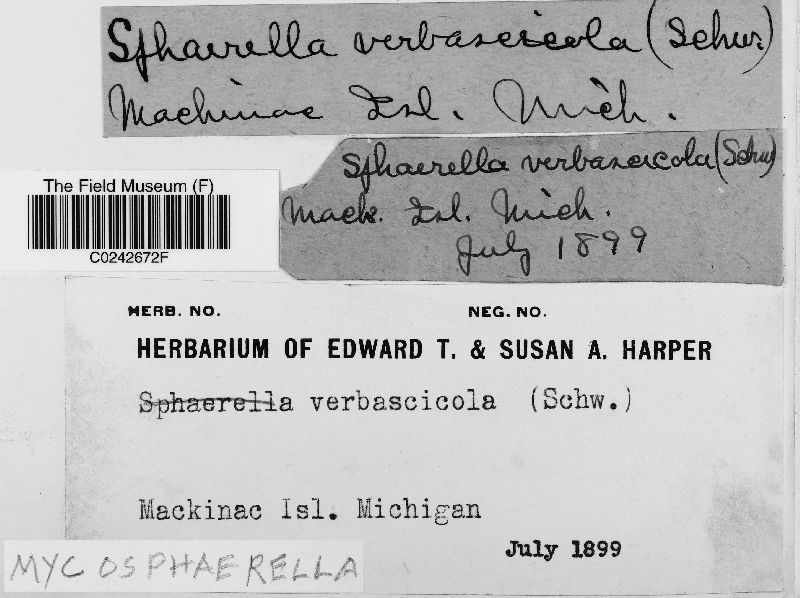 Sphaerella verbascicola (Schw.)
Mackinac Isl. Mich.
Sphaerella verbascicola (Schw)
Mack. Isl. Mich.
July 1899
The Field Museum (F)
C0242672F
HERB. NO. NEG. NO.
HERBARIUM OF EDWARD T. & SUSAN A. HARPER
Sphaerella verbascicola (Schw.)
Mackinac Isl. Michigan
July 1899
MYCOSPHAERELLA